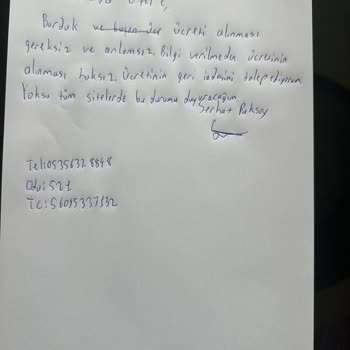 Burdak ve buçen der ücreti alınması
gereksiz ve anlamsız. Bilgi verilmeden ücretinin
alınması haksız. Ücretinin geri iadesini talep ediyorum
Yoksa tüm sitelerde bu durumu duyuracağım
Serhat Paksoy
Tel:05356328848
Oda:521
TC:56095337132